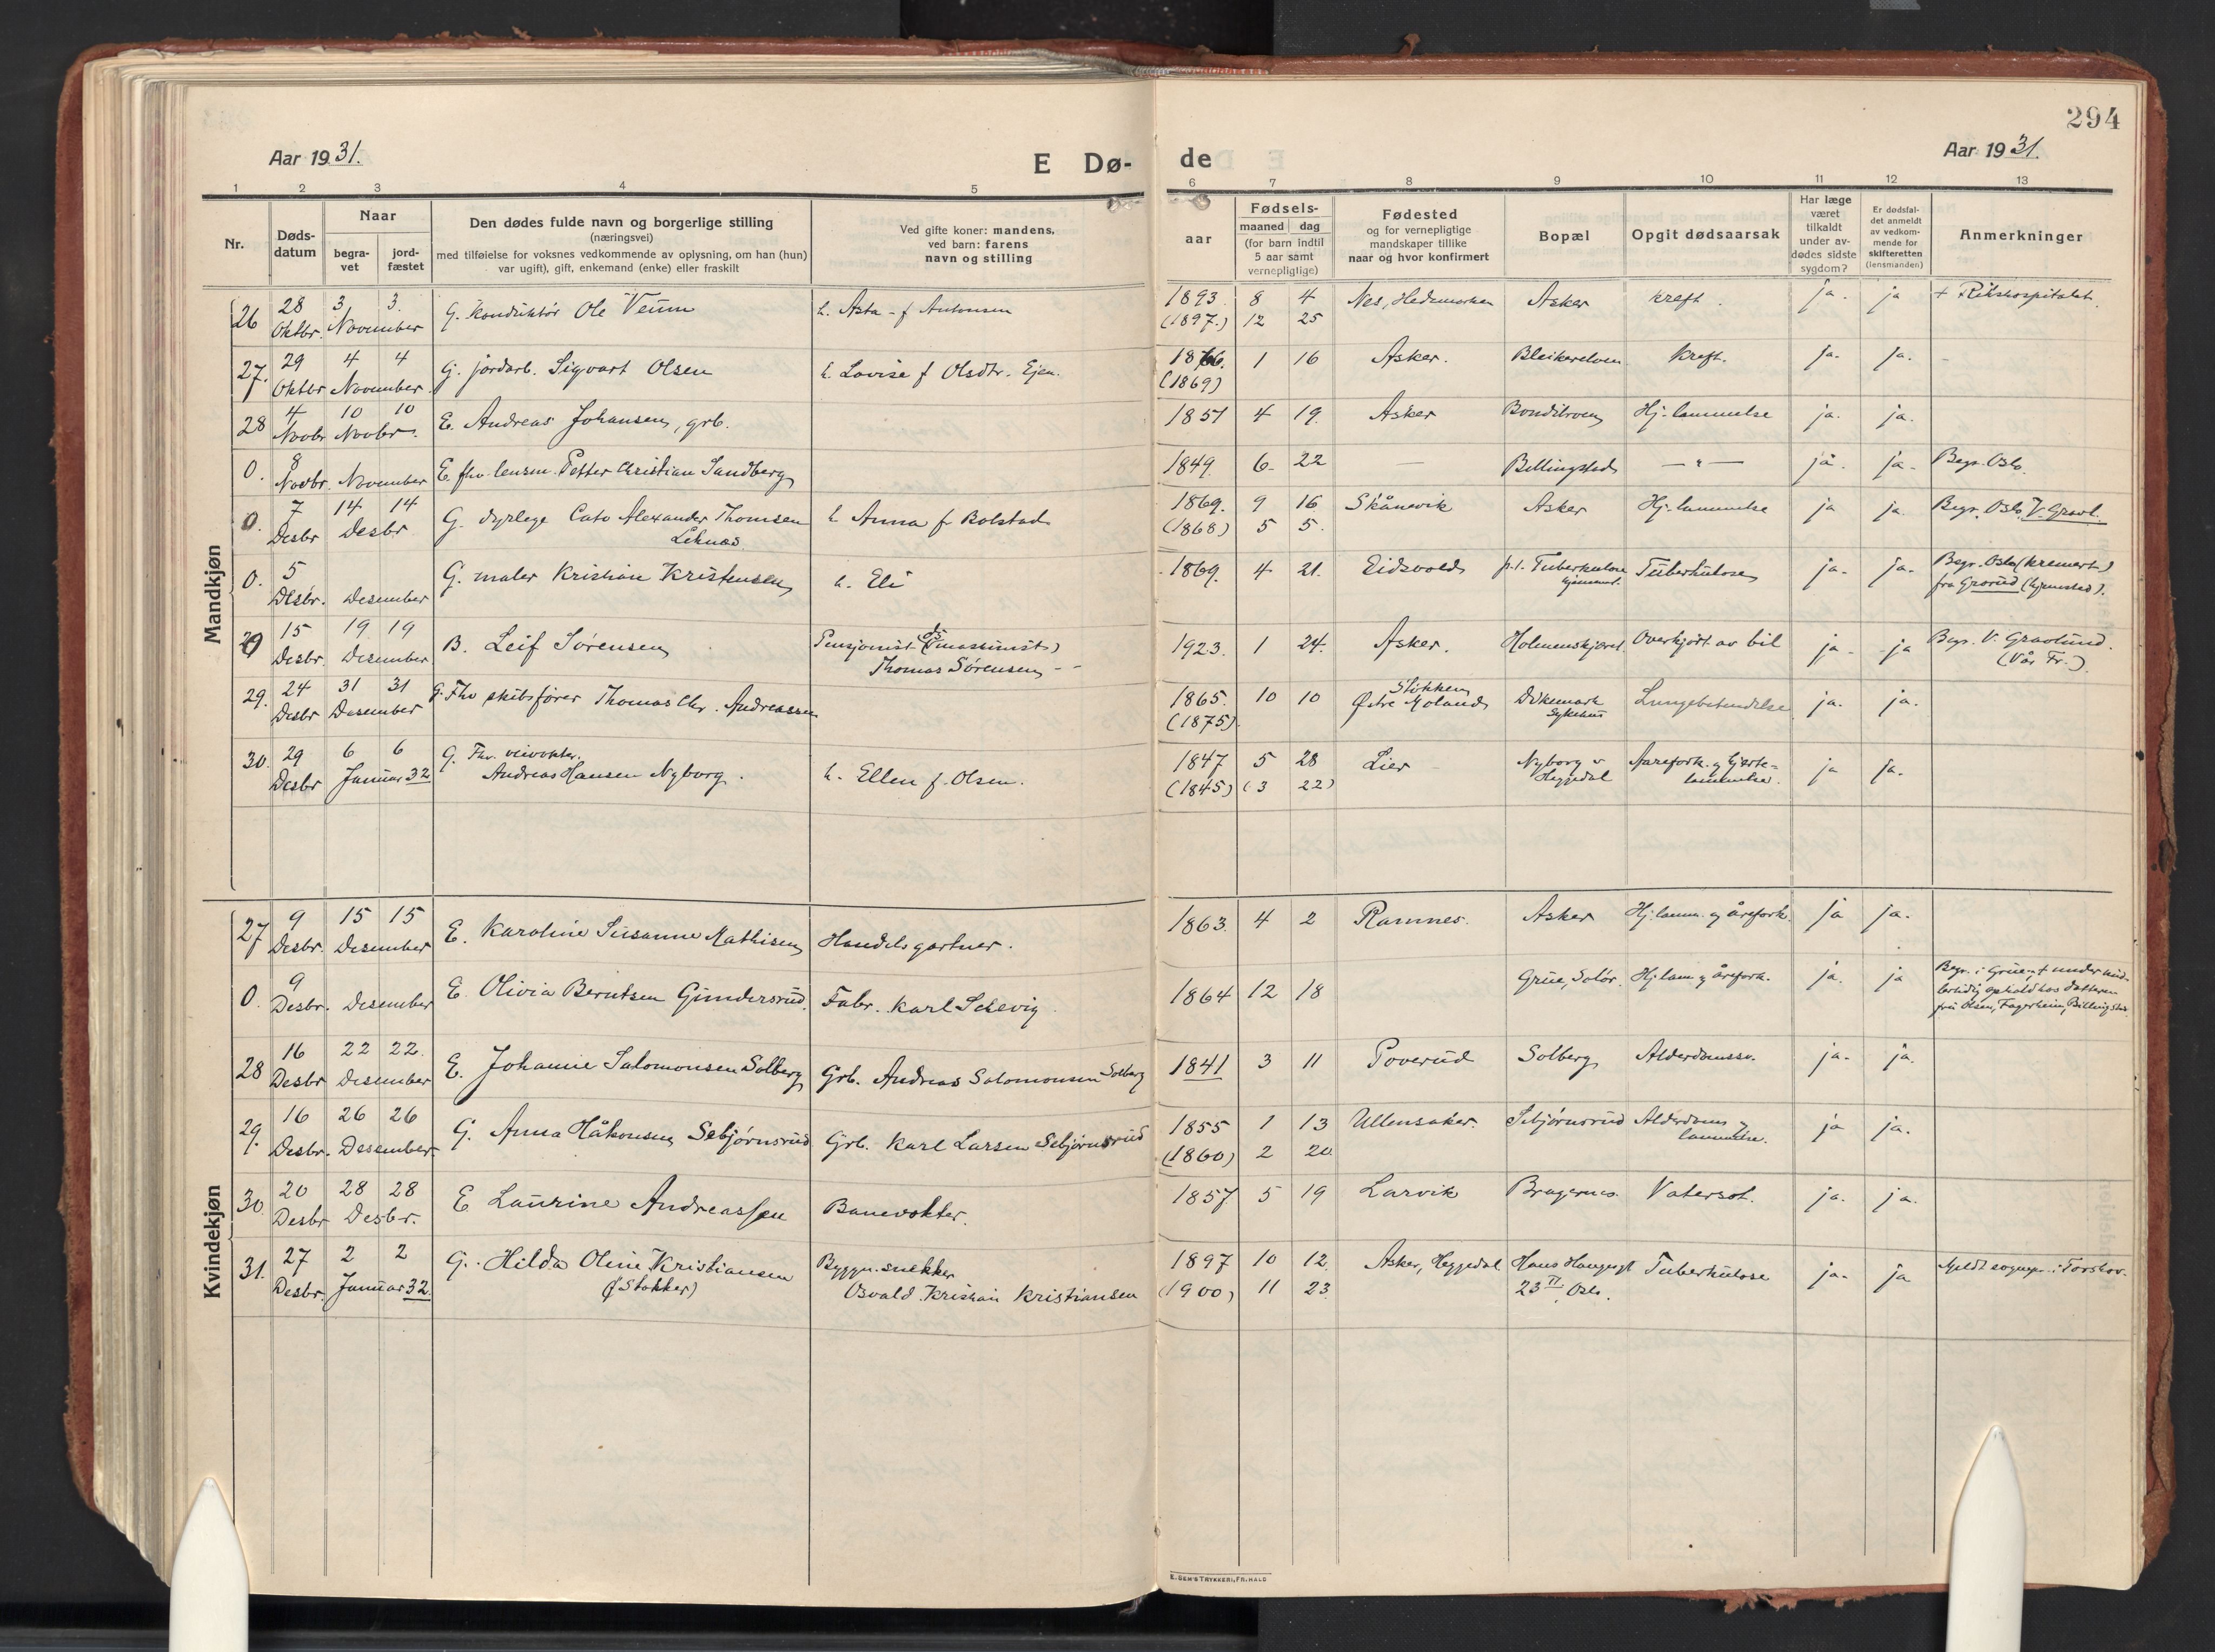 294
Aar 1931.
E Dø-
de
Aar 1931.
1 2 3 4 5 6 7 8 9 10 11 12 13
Nr.
Døds-
datum
Naar
begra-
vet
jord-
fæstet
Den dødes fulde navn og borgerlige stilling
(næringsvei)
med tilføielse for voksnes vedkommende av oplysning, om han (hun)
var ugift), gift, enkemand (enke) eller fraskilt
Ved gifte koner: mandens,
ved barn: farens
navn og stilling
aar
Fødsels-
maaned dag
(for barn indtil
5 aar samt
vernepligtige)
Fødested
og for vernepligtige
mandskaper tillike
naar og hvor konfirmert
Bopæl
Opgit dødsaarsak
Har læge
været
tilkaldt
under av-
dødes sidste
sygdom?
Er dødsfal-
det anmeldt
av vedkom-
mende for
skifteretten
(lensmanden)
Anmerkninger
Mandkjøn
26 28 3 3. G. Konduktør Ole Veum h. Asta - f Antonsen 1893 8 4 Nes, Hedemarken Asker kreft. ja. ja + Rikshospitalet.
Oktbr. November (1897.) 12 25
27. 29 4 4 G. jordarb. Sigvart Olsen h. Lovise f Olsdtr. Ejen. 1866. 1 16 Asker. Bleikerelven Kreft. ja. ja. -
Oktbr November (1869)
28 4 10 10 E. Andreas Johansen, grb. 1851 4 19. Asker Hj. lammelse ja. ja.
Novbr Novbr.
0. 8 E. fhv. lensm. Petter Christian Sandberg 1849. 6- 22 — Billingstad — " — ja. ja. Begr. Oslo.
Novbr. November
0. 7 14 14 G. dyrlege Cato Alexander Thomsen h Anna f Rolstad 1869. 9 16 Skånevik Asker Hj. lammelse ja ja. Begr. Oslo, V. Gravl.
Desbr Desbr Leknæs (1868) 5 5.
0. 5 G. maler Kristian Kristensen h. Eli 1869. 4 21. Eidsvold p.t. Tuberkulose Tuberkulose ja. ja. Begr. Oslo (kremert)
Desbr. Desember hjemmet. fra Grorud (hjemsted).
29 15 19 19 B. Leif Sørensen Pensjonist (maskinist) 1923. 1 24. Asker. Holmenskjæret Overkjørt av bil ja. ja Begr. V. Gravlund.
Desbr. Desember Thomas Sørensen - - (Vår Fr.).
29. 24 31 31 G. Fhv skibsfører Thomas Chr. Andreassen 1865. 10 10 Stokken Dikemark Lungebetendelse ja. ja.
Desbr Desember (1875). Østre Moland sykehus
30. 29 6 6 G. Fhv. veivokter, 1847 5 28 Lier Nyborg v Aarefork. og hjerte- ja ja.
Desbr Januar 32 Andreas Hansen Nyborg. h. Ellen f. Olsen. (1845) (3 22) Heggedal lammelse.
Kvindekjøn
27 9 15 15 E. Karoline Susanne Mathisen Handelsgartner. 1863. 4 2 Ramnes. Asker Hj. lamm. og årefork. ja ja.
Desbr. Desember
0. 9 E. Olivia Berntsen Gundersrud. Fabr. Karl Schevig 1864 12 18 Grue, Solør. Hj. lam og årefork. ja. ja Begr. i Grue, + under mid-
Desbr. Desember lertidig ophold hos datteren
fru Olsen, Fagerheim, Billingstad.
28 16 22 22. E. Johanne Salomonsen Solberg Grb. Andreas Salomonsen Solberg 1841 3 11 Poverud Solberg Alderdomssv. ja. ja.
Desbr Desember
29. 16 26 26 G. Anna Håkonsen Sebjørnsrud Grb. Karl Larsen Sebjørnsrud 1855 1 13 Ullensaker. Sebjørnsrud Alderdoms og ja ja.
Desbr. Desember (1860) 2 20. lammelse.
30. 20 28 28 E Laurine Andreassen Banevokter. 1857 5 19 Larvik Bragernes. Vatersot. ja. ja.
Desbr Desbr.
31. 27 2 2 G. Hilda Oline Kristiansen Byggn. snekker 1897 10 12. Asker, Heggedal Hans Haugesgt Tuberkulose ja. ja Meldt sognepr. i Torshov.
Desbr. Januar 32 (f Stokker) Osvald Kristian Kristiansen (1900) 11 23. 23 II, Oslo.
E. SEM'S TRYKKERI, FR.HALD